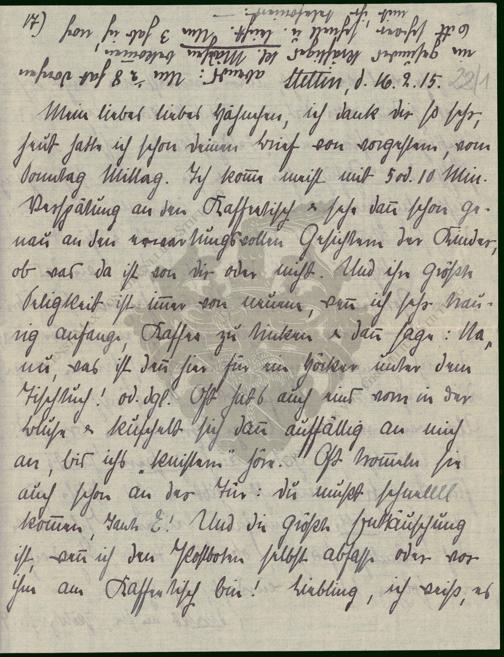 17)
abends: Um ½ 8 hat Dorchen
ein gesundes kräftiges kl. Mädchen bekommen,
Gott sei Dank schnell u. leicht. Um 3 hab ich noch
mit ihr telefoniert.
Stettin, d. 16.2.15.
22/1
Mein liebes liebes Hähnchen, ich dank dir so sehr,
heut hatte ich schon deinen Brief von vorgestern, vom
Sonntag Mittag. Ich kom̄e meist mit 5 od. 10 Min.
Verspätung an den Kaffeetisch & sehe dan̄ schon ge-
nau an den erwartungsvollen Gesichtern der Kinder,
ob was da ist von dir oder nicht. Und ihre größte
Seligkeit ist im̄er von neuem, wen̄ ich sehr trau-
rig anfange, Kaffee zu trinken & dan̄ sage: Na,
nu, was ist den̄ hier für ein Höcker unter dem
Tischtuch! od. dgl. Oft hats auch eins vorn in der
Bluse & kuschelt sich dan̄ auffällig an mich
an, bis ichs „knistern" höre. Oft trommeln sie
auch schon an der Tür: du mußt schnellll
kommen, Tante E! Und die größte Enttäuschung
ist, wen̄ ich den Postboten selbst abfasse oder vor
ihm am Kaffeetisch bin! Liebling, ich weiß, es